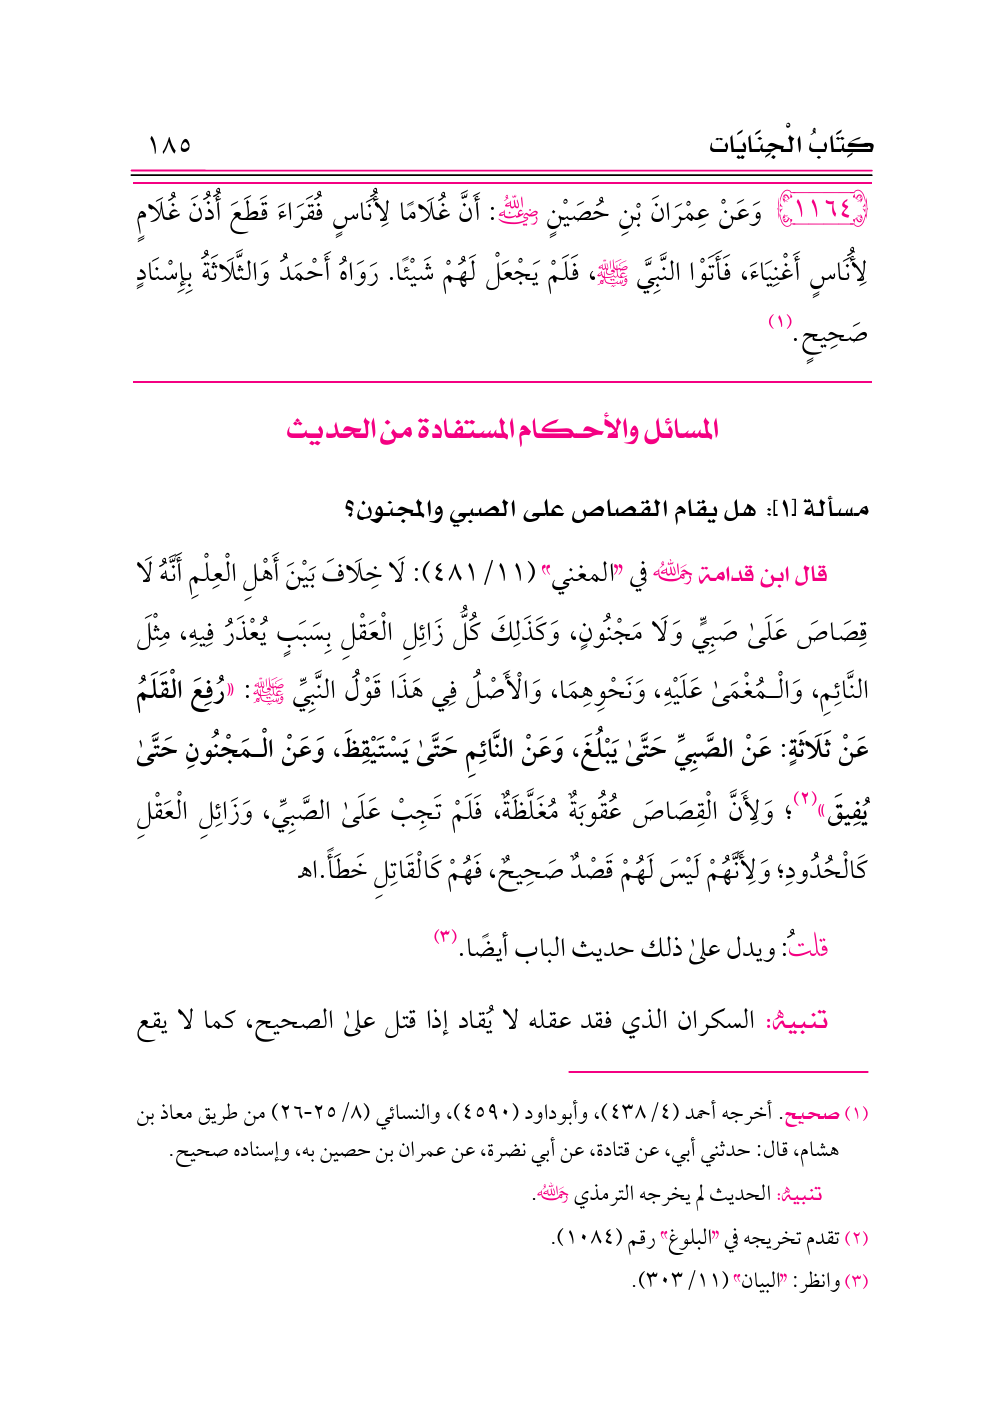 كِتَابُ الْجِنَايَات ١٨٥
١١٦٤ وَعَنْ عِمْرَانَ بْنِ حُصَيْنٍ رضي الله عنه: أَنَّ غُلَامًا لِأُنَاسٍ فُقَرَاءَ قَطَعَ أُذُنَ غُلَامٍ
لِأُنَاسٍ أَغْنِيَاءَ، فَأَتَوْا النَّبِيَّ ﷺ، فَلَمْ يَجْعَلْ لَهُمْ شَيْئًا. رَوَاهُ أَحْمَدُ وَالثَّلَاثَةُ بِإِسْنَادٍ
صَحِيحٍ.(١)
المسائل والأحكام المستفادة من الحديث
مسألة [١]: هل يقام القصاص على الصبي والمجنون؟
قال ابن قدامة رحمه الله في "المغني" (١١/ ٤٨١): لَا خِلَافَ بَيْنَ أَهْلِ الْعِلْمِ أَنَّهُ لَا
قِصَاصَ عَلَىٰ صَبِيٍّ وَلَا مَجْنُونٍ، وَكَذَلِكَ كُلُّ زَائِلِ الْعَقْلِ بِسَبَبٍ يُعْذَرُ فِيهِ، مِثْلَ
النَّائِمِ، وَالْـمُغْمَىٰ عَلَيْهِ، وَنَحْوِهِمَا، وَالْأَصْلُ فِي هَذَا قَوْلُ النَّبِيِّ ﷺ: «رُفِعَ الْقَلَمُ
عَنْ ثَلَاثَةٍ: عَنْ الصَّبِيِّ حَتَّىٰ يَبْلُغَ، وَعَنْ النَّائِمِ حَتَّىٰ يَسْتَيْقِظَ، وَعَنْ الْـمَجْنُونِ حَتَّىٰ
يُفِيقَ»(٢)؛ وَلِأَنَّ الْقِصَاصَ عُقُوبَةٌ مُغَلَّظَةٌ، فَلَمْ تَجِبْ عَلَىٰ الصَّبِيِّ، وَزَائِلِ الْعَقْلِ
كَالْحُدُودِ؛ وَلِأَنَّهُمْ لَيْسَ لَهُمْ قَصْدٌ صَحِيحٌ، فَهُمْ كَالْقَاتِلِ خَطَأً.اهـ
قلتُ: ويدل علىٰ ذلك حديث الباب أيضًا.(٣)
تنبيه: السكران الذي فقد عقله لا يُقاد إذا قتل علىٰ الصحيح، كما لا يقع
(١) صحيح. أخرجه أحمد (٤/ ٤٣٨)، وأبوداود (٤٥٩٠)، والنسائي (٨/ ٢٥-٢٦) من طريق معاذ بن
هشام، قال: حدثني أبي، عن قتادة، عن أبي نضرة، عن عمران بن حصين به، وإسناده صحيح.
تنبيه: الحديث لم يخرجه الترمذي رحمه الله.
(٢) تقدم تخريجه في "البلوغ" رقم (١٠٨٤).
(٣) وانظر: "البيان" (١١/ ٣٠٣).